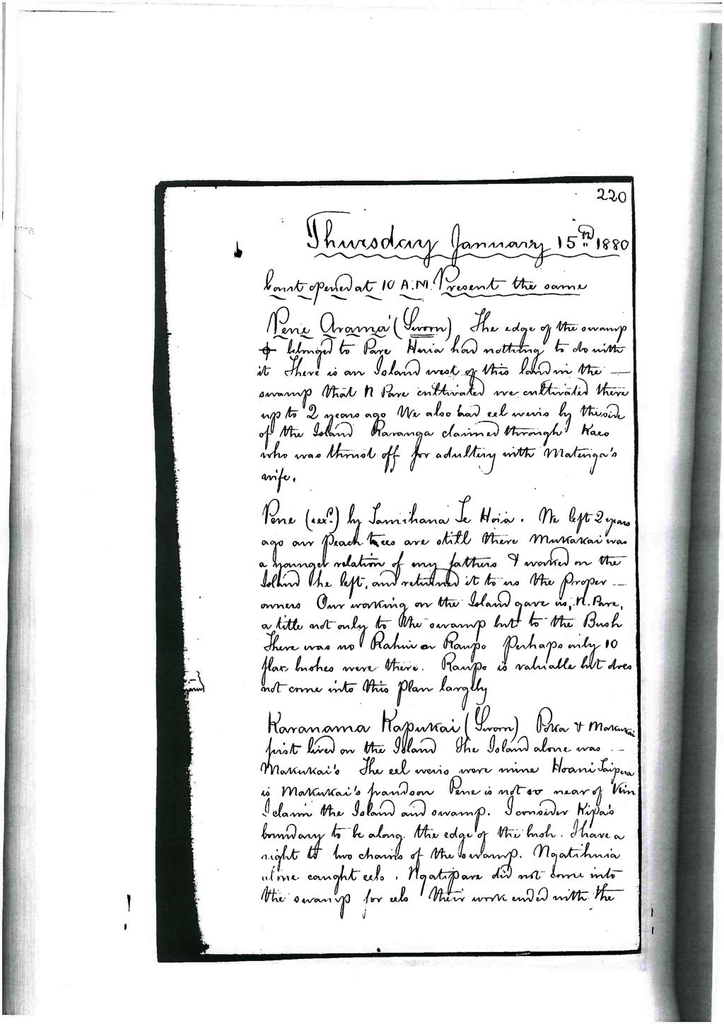 220
Thursday January 15th 1880
Court opened at 10 A.M. Present the same
Pene Arama (Sworn) The edge of the swamp
belonged to Pare Huia had nothing to do with
it There is an Island west of this land in the
swamp that N Pare cultivated we cultivated there
up to 2 years ago We also had eel weirs by the side
of the Island Karanga claimed through Kaeo
who was thrust off for adultery with Matenga's
wife.
Pene (xxd.) by Tamihana Te Hoia. We left 2 years
ago our peach trees are still there Mukakai was
a younger relation of my fathers & worked on the
Island He left, and returned it to us the proper
owners Our working on the Island gave us, N. Pare,
a title not only to the swamp but to the Bush
There was no Rahui on Raupo Perhaps only 10
flax bushes were there. Raupo is valuable but does
not come into this plan largely
Karanama Kapukai (Sworn) & Makukai
first lived on the Island The Island alone was
Makukai's The eel weirs were mine Hoani Taipua
is Makukai's grandson Pene is not so near of Kin
I claim the Island and swamp. I consider Kipa's
boundary to be along the edge of the bush. I have a
right to two chains of the swamp. Ngatihuia
alone caught eels. Ngatipare did not come into
the swamp for eels their work ended with the